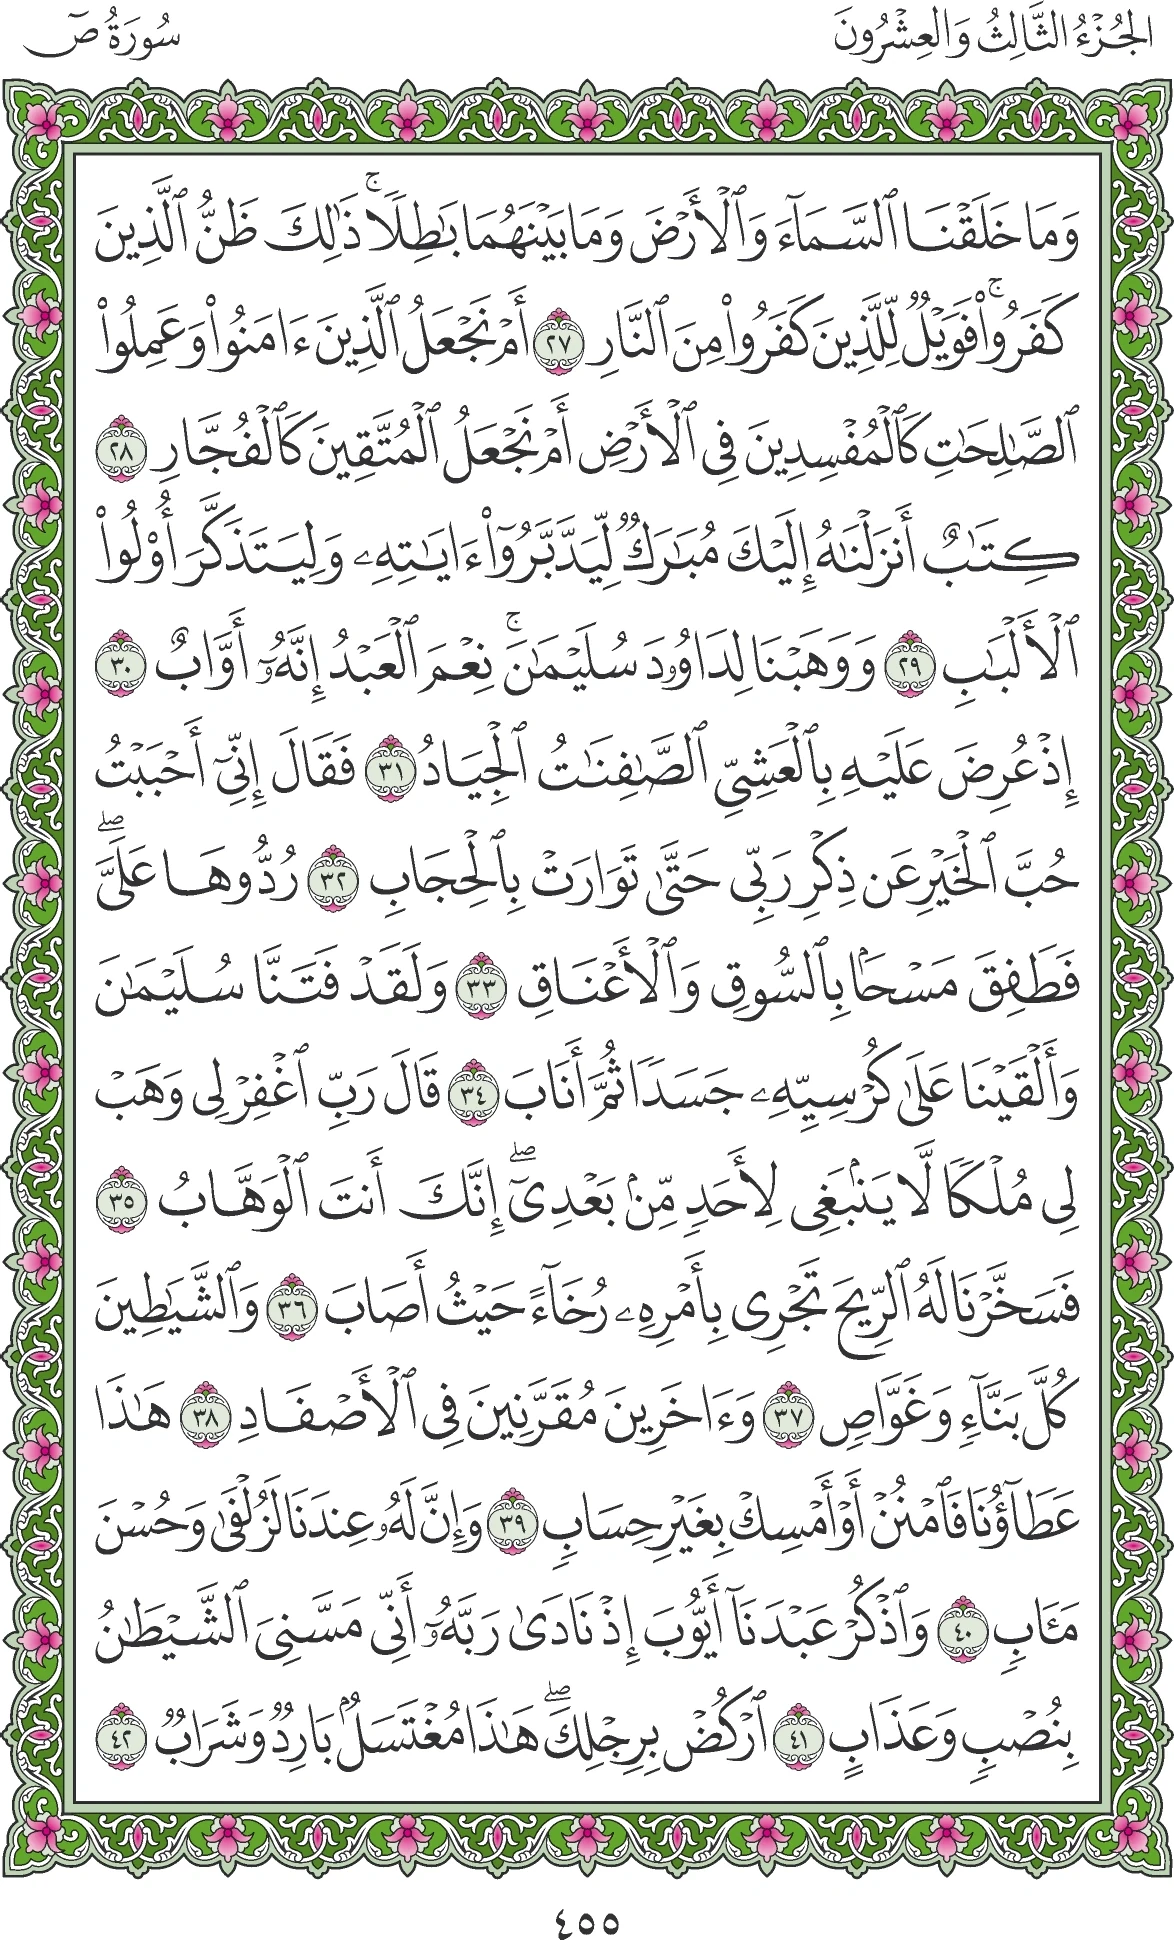 الجُزْءُ الثَّالِثُ وَالعِشْرُونَ
سُورَةُ صٓ
وَمَا خَلَقْنَا ٱلسَّمَآءَ وَٱلْأَرْضَ وَمَا بَيْنَهُمَا بَٰطِلًاۚ ذَٰلِكَ ظَنُّ ٱلَّذِينَ
كَفَرُوا۟ۚ فَوَيْلٌ لِّلَّذِينَ كَفَرُوا۟ مِنَ ٱلنَّارِ ٢٧ أَمْ نَجْعَلُ ٱلَّذِينَ ءَامَنُوا۟ وَعَمِلُوا۟
ٱلصَّٰلِحَٰتِ كَٱلْمُفْسِدِينَ فِى ٱلْأَرْضِ أَمْ نَجْعَلُ ٱلْمُتَّقِينَ كَٱلْفُجَّارِ ٢٨
كِتَٰبٌ أَنزَلْنَٰهُ إِلَيْكَ مُبَٰرَكٌ لِّيَدَّبَّرُوٓا۟ ءَايَٰتِهِۦ وَلِيَتَذَكَّرَ أُو۟لُوا۟
ٱلْأَلْبَٰبِ ٢٩ وَوَهَبْنَا لِدَاوُۥدَ سُلَيْمَٰنَۚ نِعْمَ ٱلْعَبْدُ إِنَّهُۥٓ أَوَّابٌ ٣٠
إِذْ عُرِضَ عَلَيْهِ بِٱلْعَشِىِّ ٱلصَّٰفِنَٰتُ ٱلْجِيَادُ ٣١ فَقَالَ إِنِّىٓ أَحْبَبْتُ
حُبَّ ٱلْخَيْرِ عَن ذِكْرِ رَبِّى حَتَّىٰ تَوَارَتْ بِٱلْحِجَابِ ٣٢ رُدُّوهَا عَلَىَّۖ
فَطَفِقَ مَسْحًۢا بِٱلسُّوقِ وَٱلْأَعْنَاقِ ٣٣ وَلَقَدْ فَتَنَّا سُلَيْمَٰنَ
وَأَلْقَيْنَا عَلَىٰ كُرْسِيِّهِۦ جَسَدًا ثُمَّ أَنَابَ ٣٤ قَالَ رَبِّ ٱغْفِرْ لِى وَهَبْ
لِى مُلْكًا لَّا يَنۢبَغِى لِأَحَدٍ مِّنۢ بَعْدِىٓۖ إِنَّكَ أَنتَ ٱلْوَهَّابُ ٣٥
فَسَخَّرْنَا لَهُ ٱلرِّيحَ تَجْرِى بِأَمْرِهِۦ رُخَآءً حَيْثُ أَصَابَ ٣٦ وَٱلشَّيَٰطِينَ
كُلَّ بَنَّآءٍ وَغَوَّاصٍ ٣٧ وَءَاخَرِينَ مُقَرَّنِينَ فِى ٱلْأَصْفَادِ ٣٨ هَٰذَا
عَطَآؤُنَا فَٱمْنُنْ أَوْ أَمْسِكْ بِغَيْرِ حِسَابٍ ٣٩ وَإِنَّ لَهُۥ عِندَنَا لَزُلْفَىٰ وَحُسْنَ
مَـَٔابٍ ٤٠ وَٱذْكُرْ عَبْدَنَآ أَيُّوبَ إِذْ نَادَىٰ رَبَّهُۥٓ أَنِّى مَسَّنِىَ ٱلشَّيْطَٰنُ
بِنُصْبٍ وَعَذَابٍ ٤١ ٱرْكُضْ بِرِجْلِكَۖ هَٰذَا مُغْتَسَلٌۢ بَارِدٌ وَشَرَابٌ ٤٢
٤٥٥